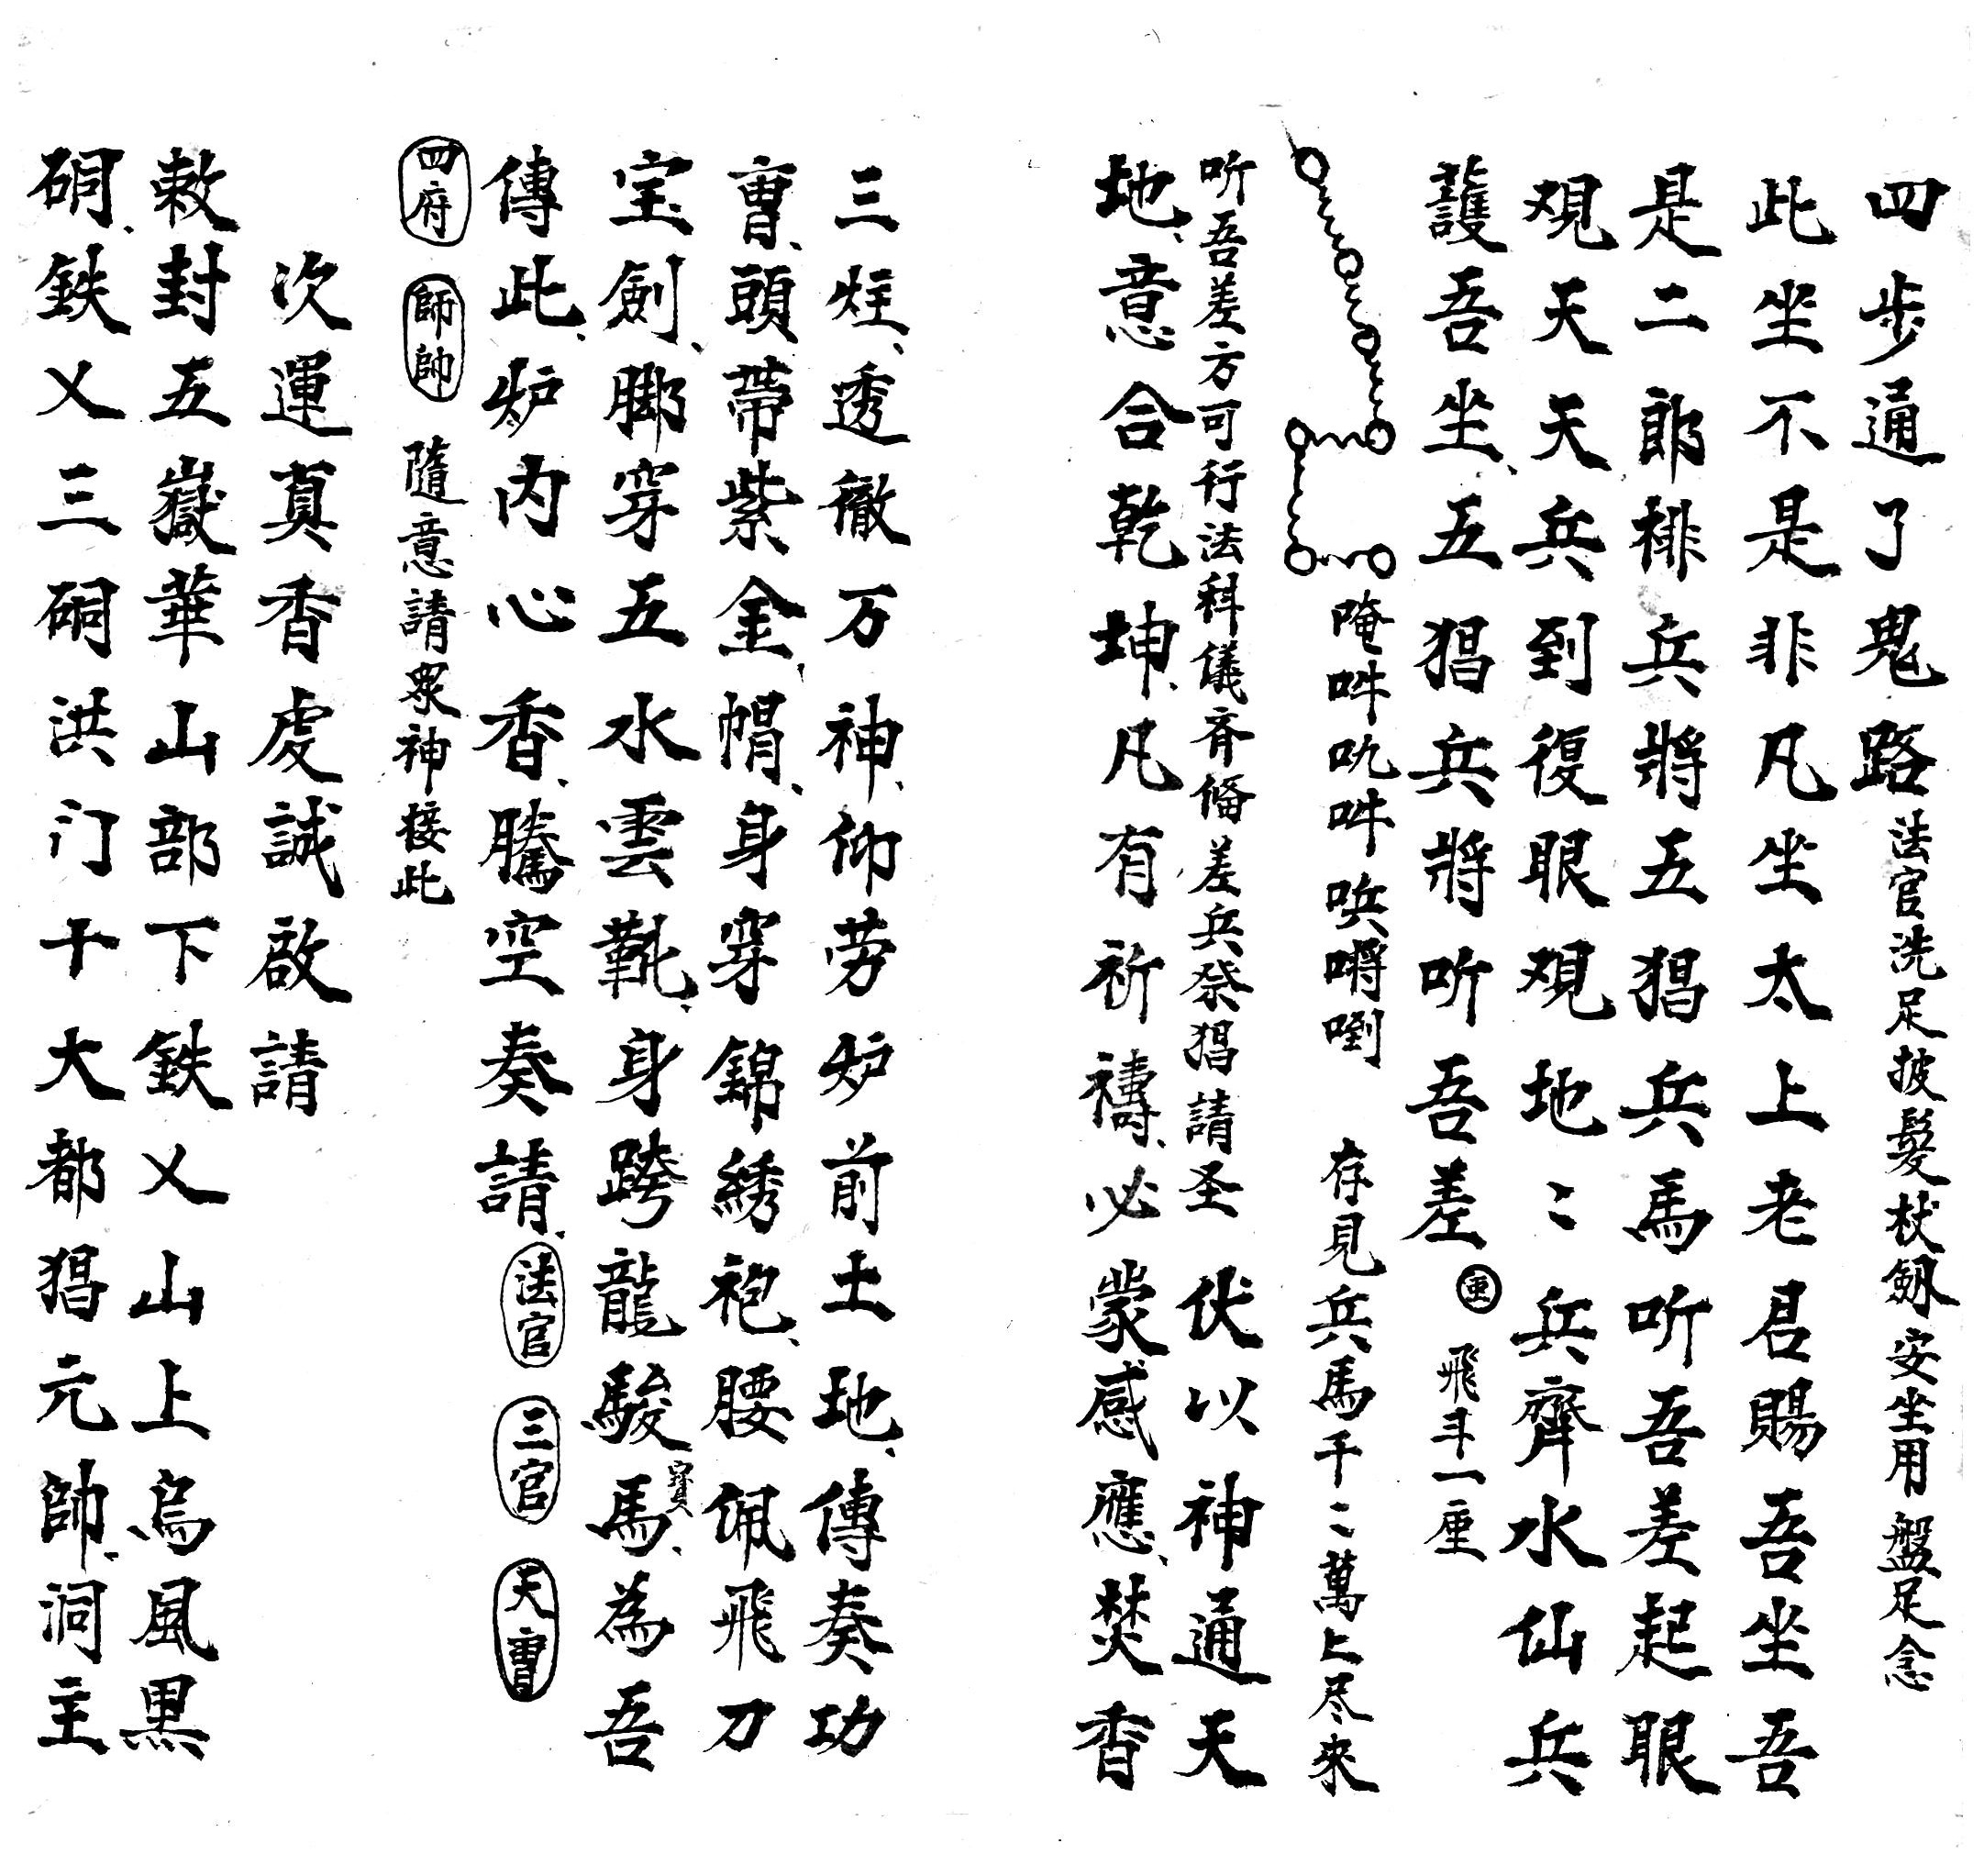 四步通了鬼路法官洗足披髮杖劔安坐用盤足念
此坐不是非凡坐太上老君賜吾坐吾
是二郎排兵將五猖兵馬听吾差起眼
观天天兵到復眼观地〻兵齊水仙兵
護吾坐、五猖兵將听吾差 飛斗一座
唵吽吼吽㖹嚼㗚 存見兵馬千〻萬上尽來
听吾差方可行法科儀齐偹差兵祭猖請圣伏以神通天
地、意合乾坤、凡有祈禱、必蒙感應、焚香
三炷、透徹万神、仰劳炉前土地、傳奏功
曹、頭帶紫金、帽、身穿錦綉袍、腰佩飛刀
宝劍、脚穿五水雲靴、身跨龍駿馬、寳為吾
傳此、炉内心香、騰空奏請、法官 三官 天曹
四府 師帥 隨意請眾神接此
次運真香虔誠啟請
敕封五嶽華山部下鉄乂山上烏風黑
硐、鉄乂三硐洪门千大都猖元帥、洞主